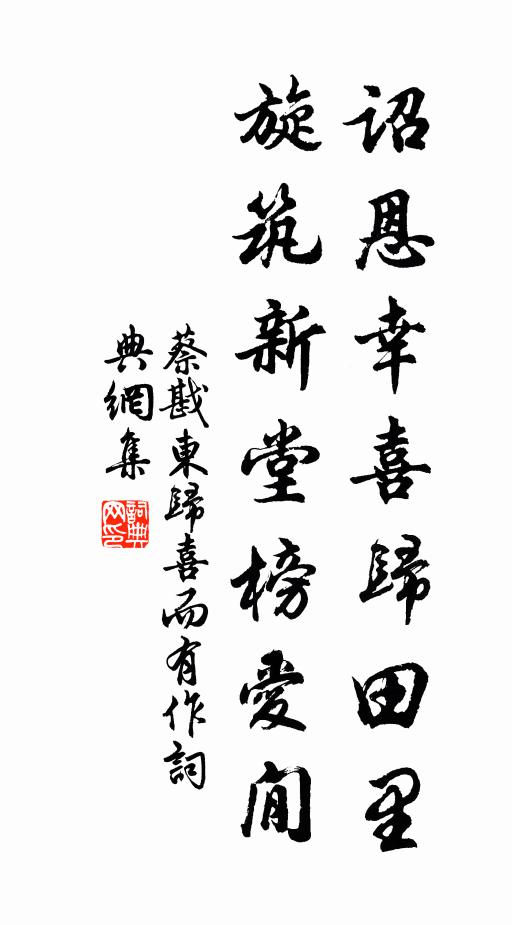 詔恩幸喜歸田里
旋筑新堂榜愛閒
蔡戡東歸喜而有作詞
典網集
詞典
网印